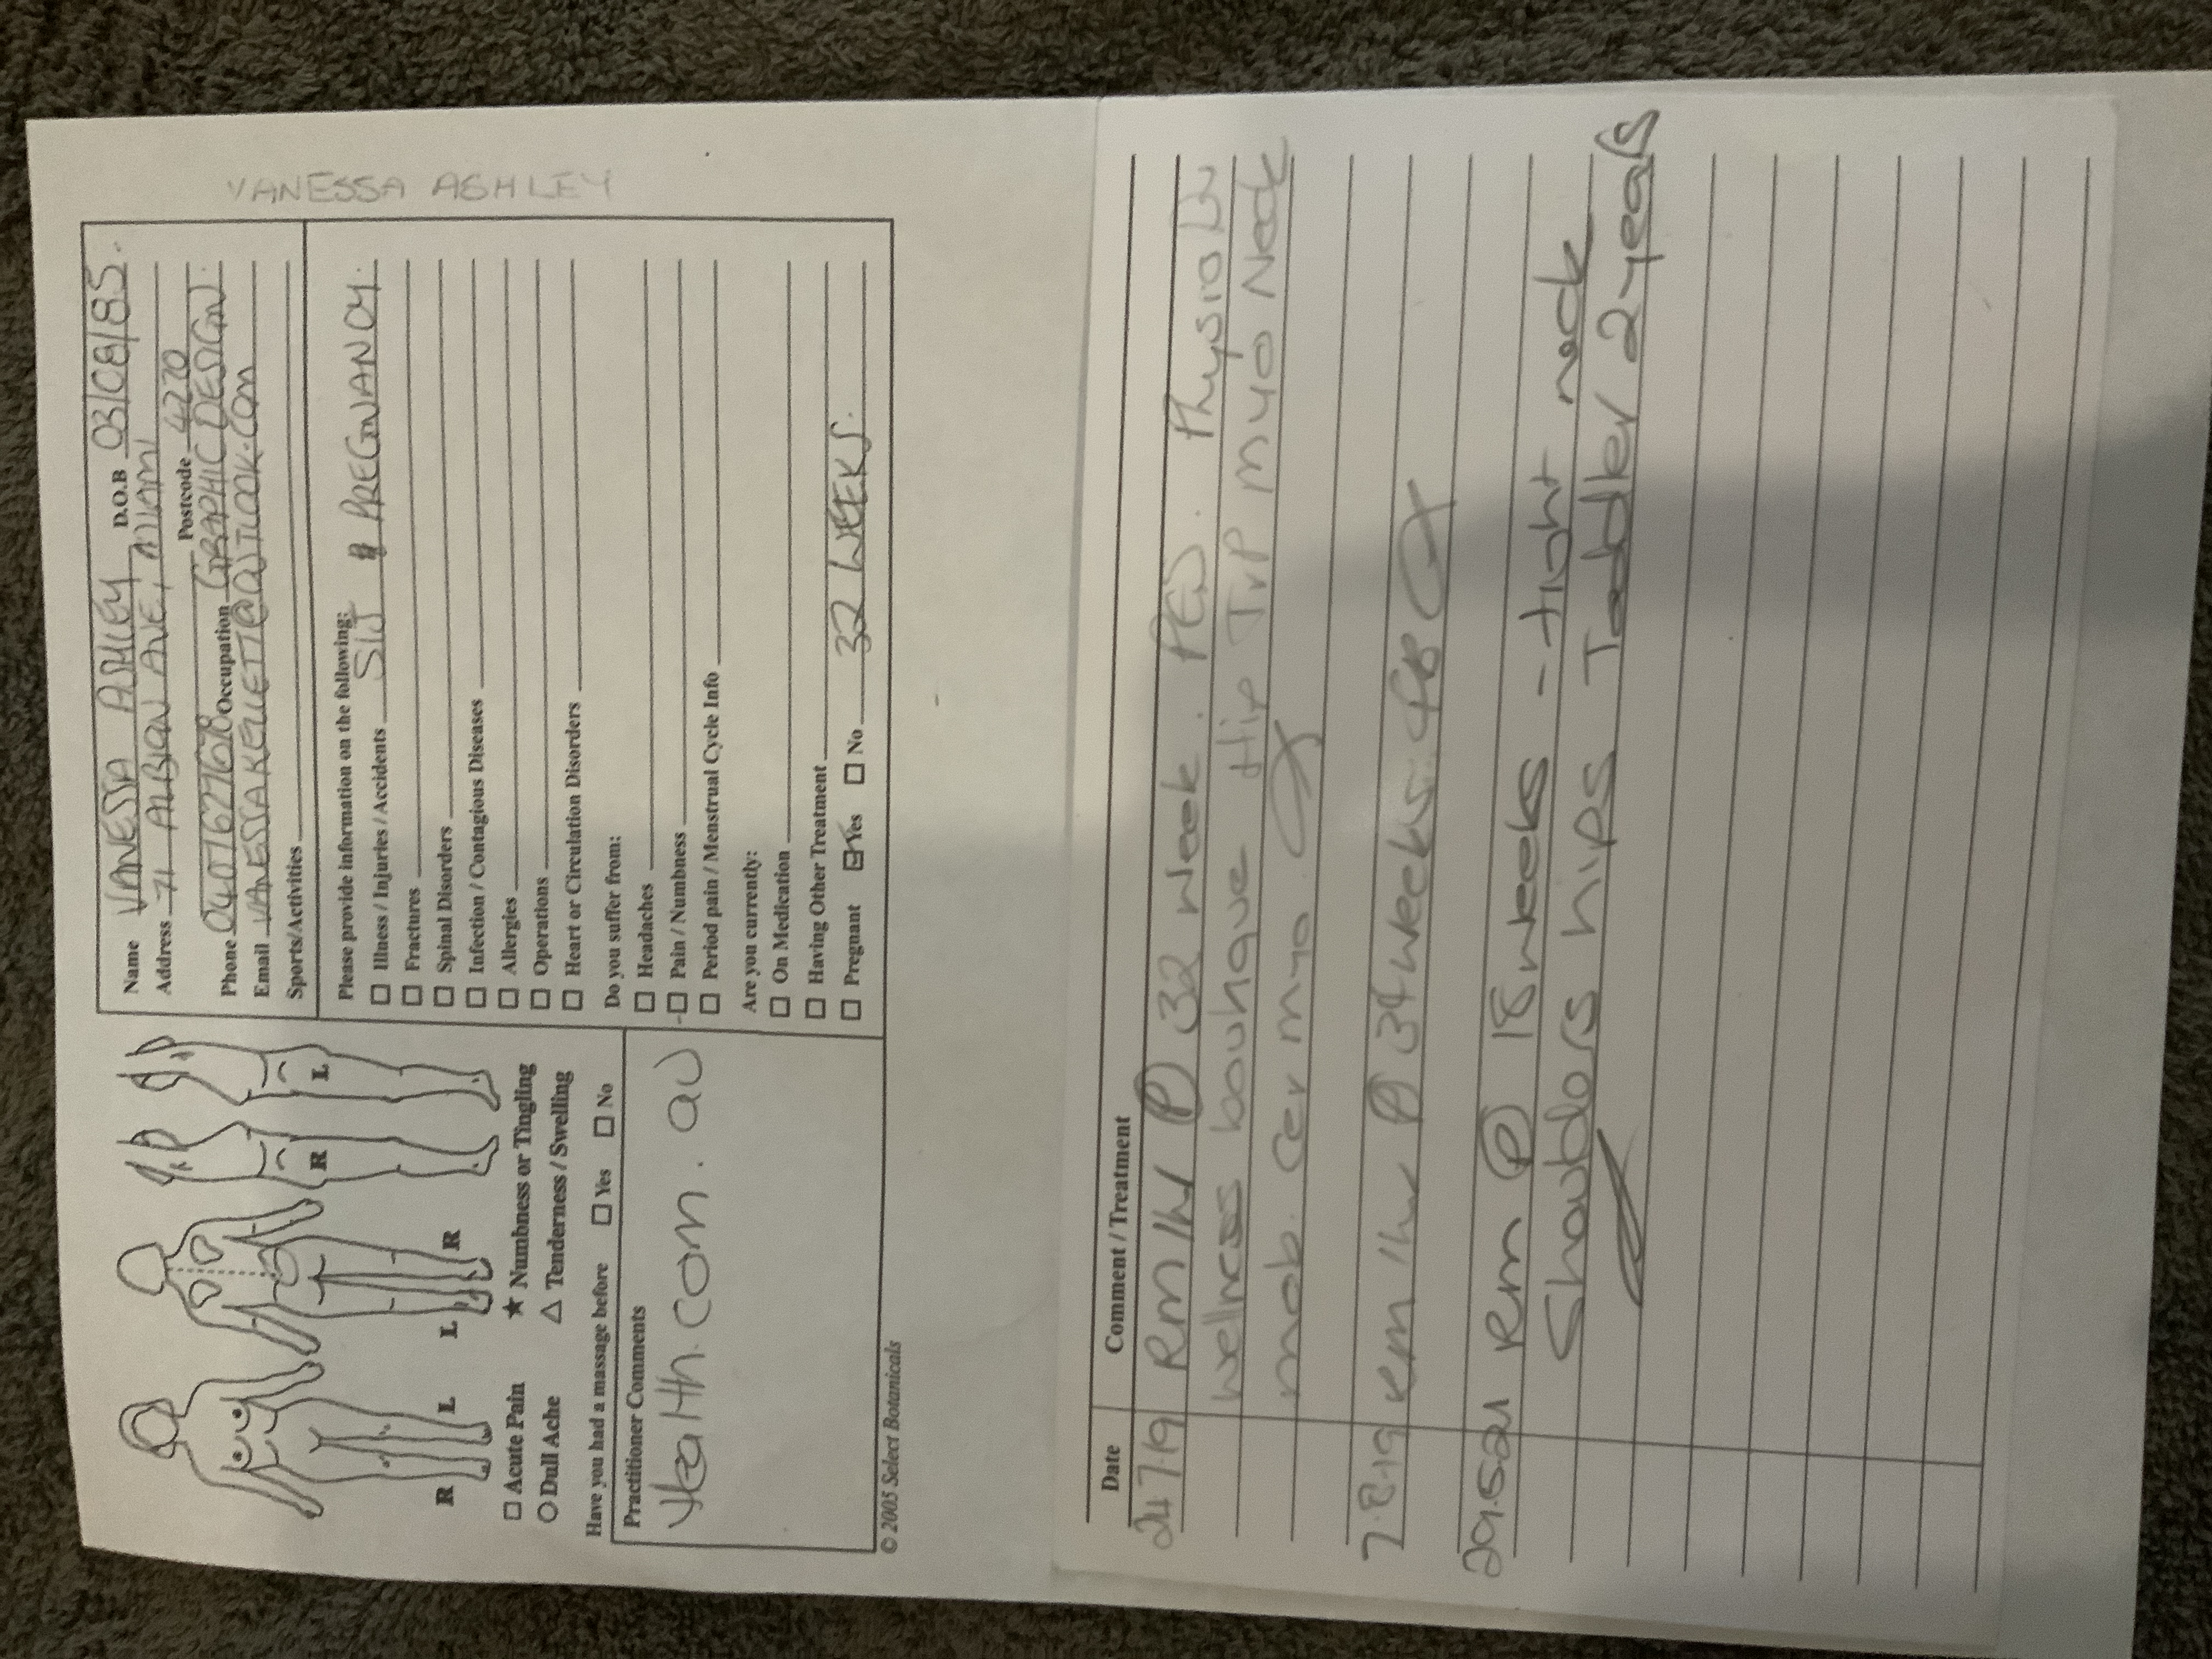 VANESSA ASHLEY
Name VANESSA ASHLEY D.O.B 03/08/85.
Address 71 ALBION AVE,
Postcode 4270
Phone Occupation GRAPHIC DESIGN.
Email VANESSAKELLETT@OUTLOOK.COM
Sports/Activities
Please provide information on the following:
Illness / Injuries / Accidents SIJ PREGNANCY.
Fractures
Spinal Disorders
Infection / Contagious Diseases
Allergies
Operations
Heart or Circulation Disorders
Do you suffer from:
Headaches
Pain / Numbness
Period pain / Menstrual Cycle Info
Are you currently:
On Medication
Having Other Treatment
Pregnant Yes No 32 WEEKS.
R L L R R L
Acute Pain ★ Numbness or Tingling
Dull Ache △ Tenderness / Swelling
Have you had a massage before Yes No
Practitioner Comments
Health.com.au
© 2005 Select Botanicals
Date Comment / Treatment
24.7.19 Rm 1hr (P) 32 week. PES. Physio
wellness Hip TrP myo Neck
mob. Cer myo.
7.8.19 Rm 1hr (P) 34 weeks.
29.5.21 Rm (P) 18 weeks - tight neck
Shoulders hips Toddler 2 years